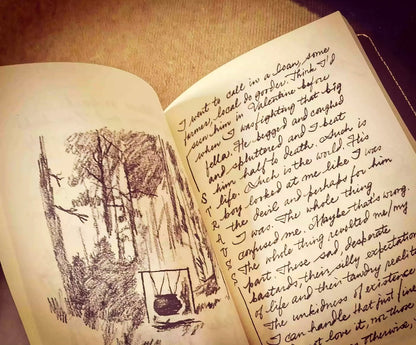 I went to call in a loan, some
farmer, local do gooder. Think I'd
seen him in Valentine before
when I was fighting that big
fella. He begged and coughed
and spluttered and I beat
him half to death. Such is
life. Such is the world. His
boy looked at me like I was
the devil and perhaps for him
I was. The whole thing
confused me. Maybe that's wrong.
The whole thing revolted me/my
part. These sad desperate
bastards, their silly expectations
of life and their tawdry reality
The unkindness of existence
I can handle that just fine
not love it, nor those
otherwise,
STRAUSS